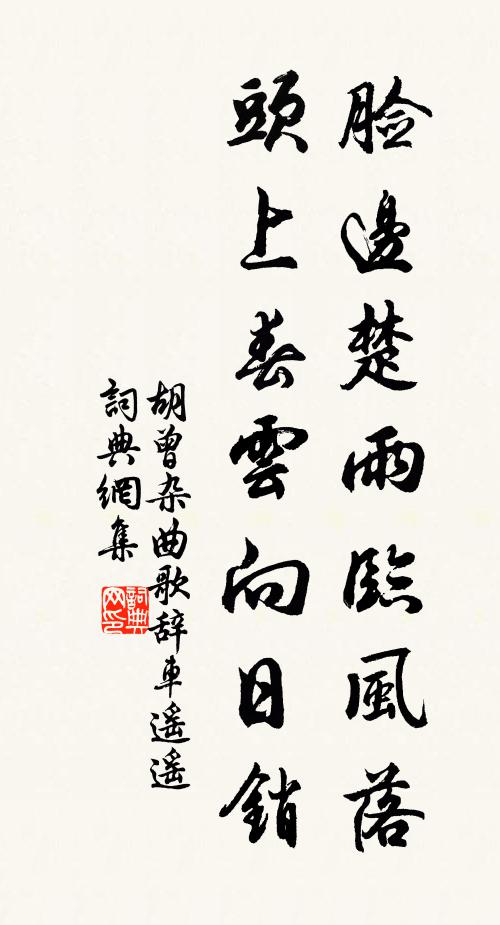 脸邊楚雨臨風落
頭上春雲向日銷
胡曾杂曲歌辞車遥遥
詞典網集
詞典网印